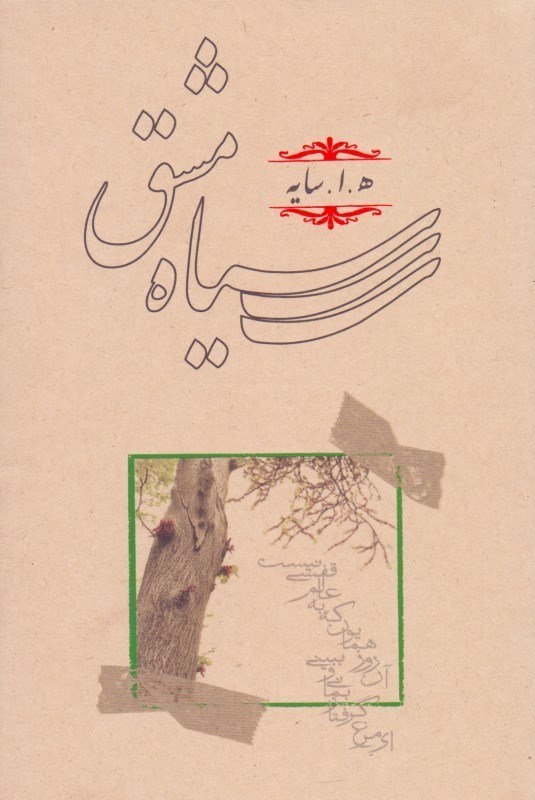 سیاه مشق
ه. ا. سایه
ای مرغ گرفتار بمانی و ببینی
آن روز همایون که به عالم قفسی نیست